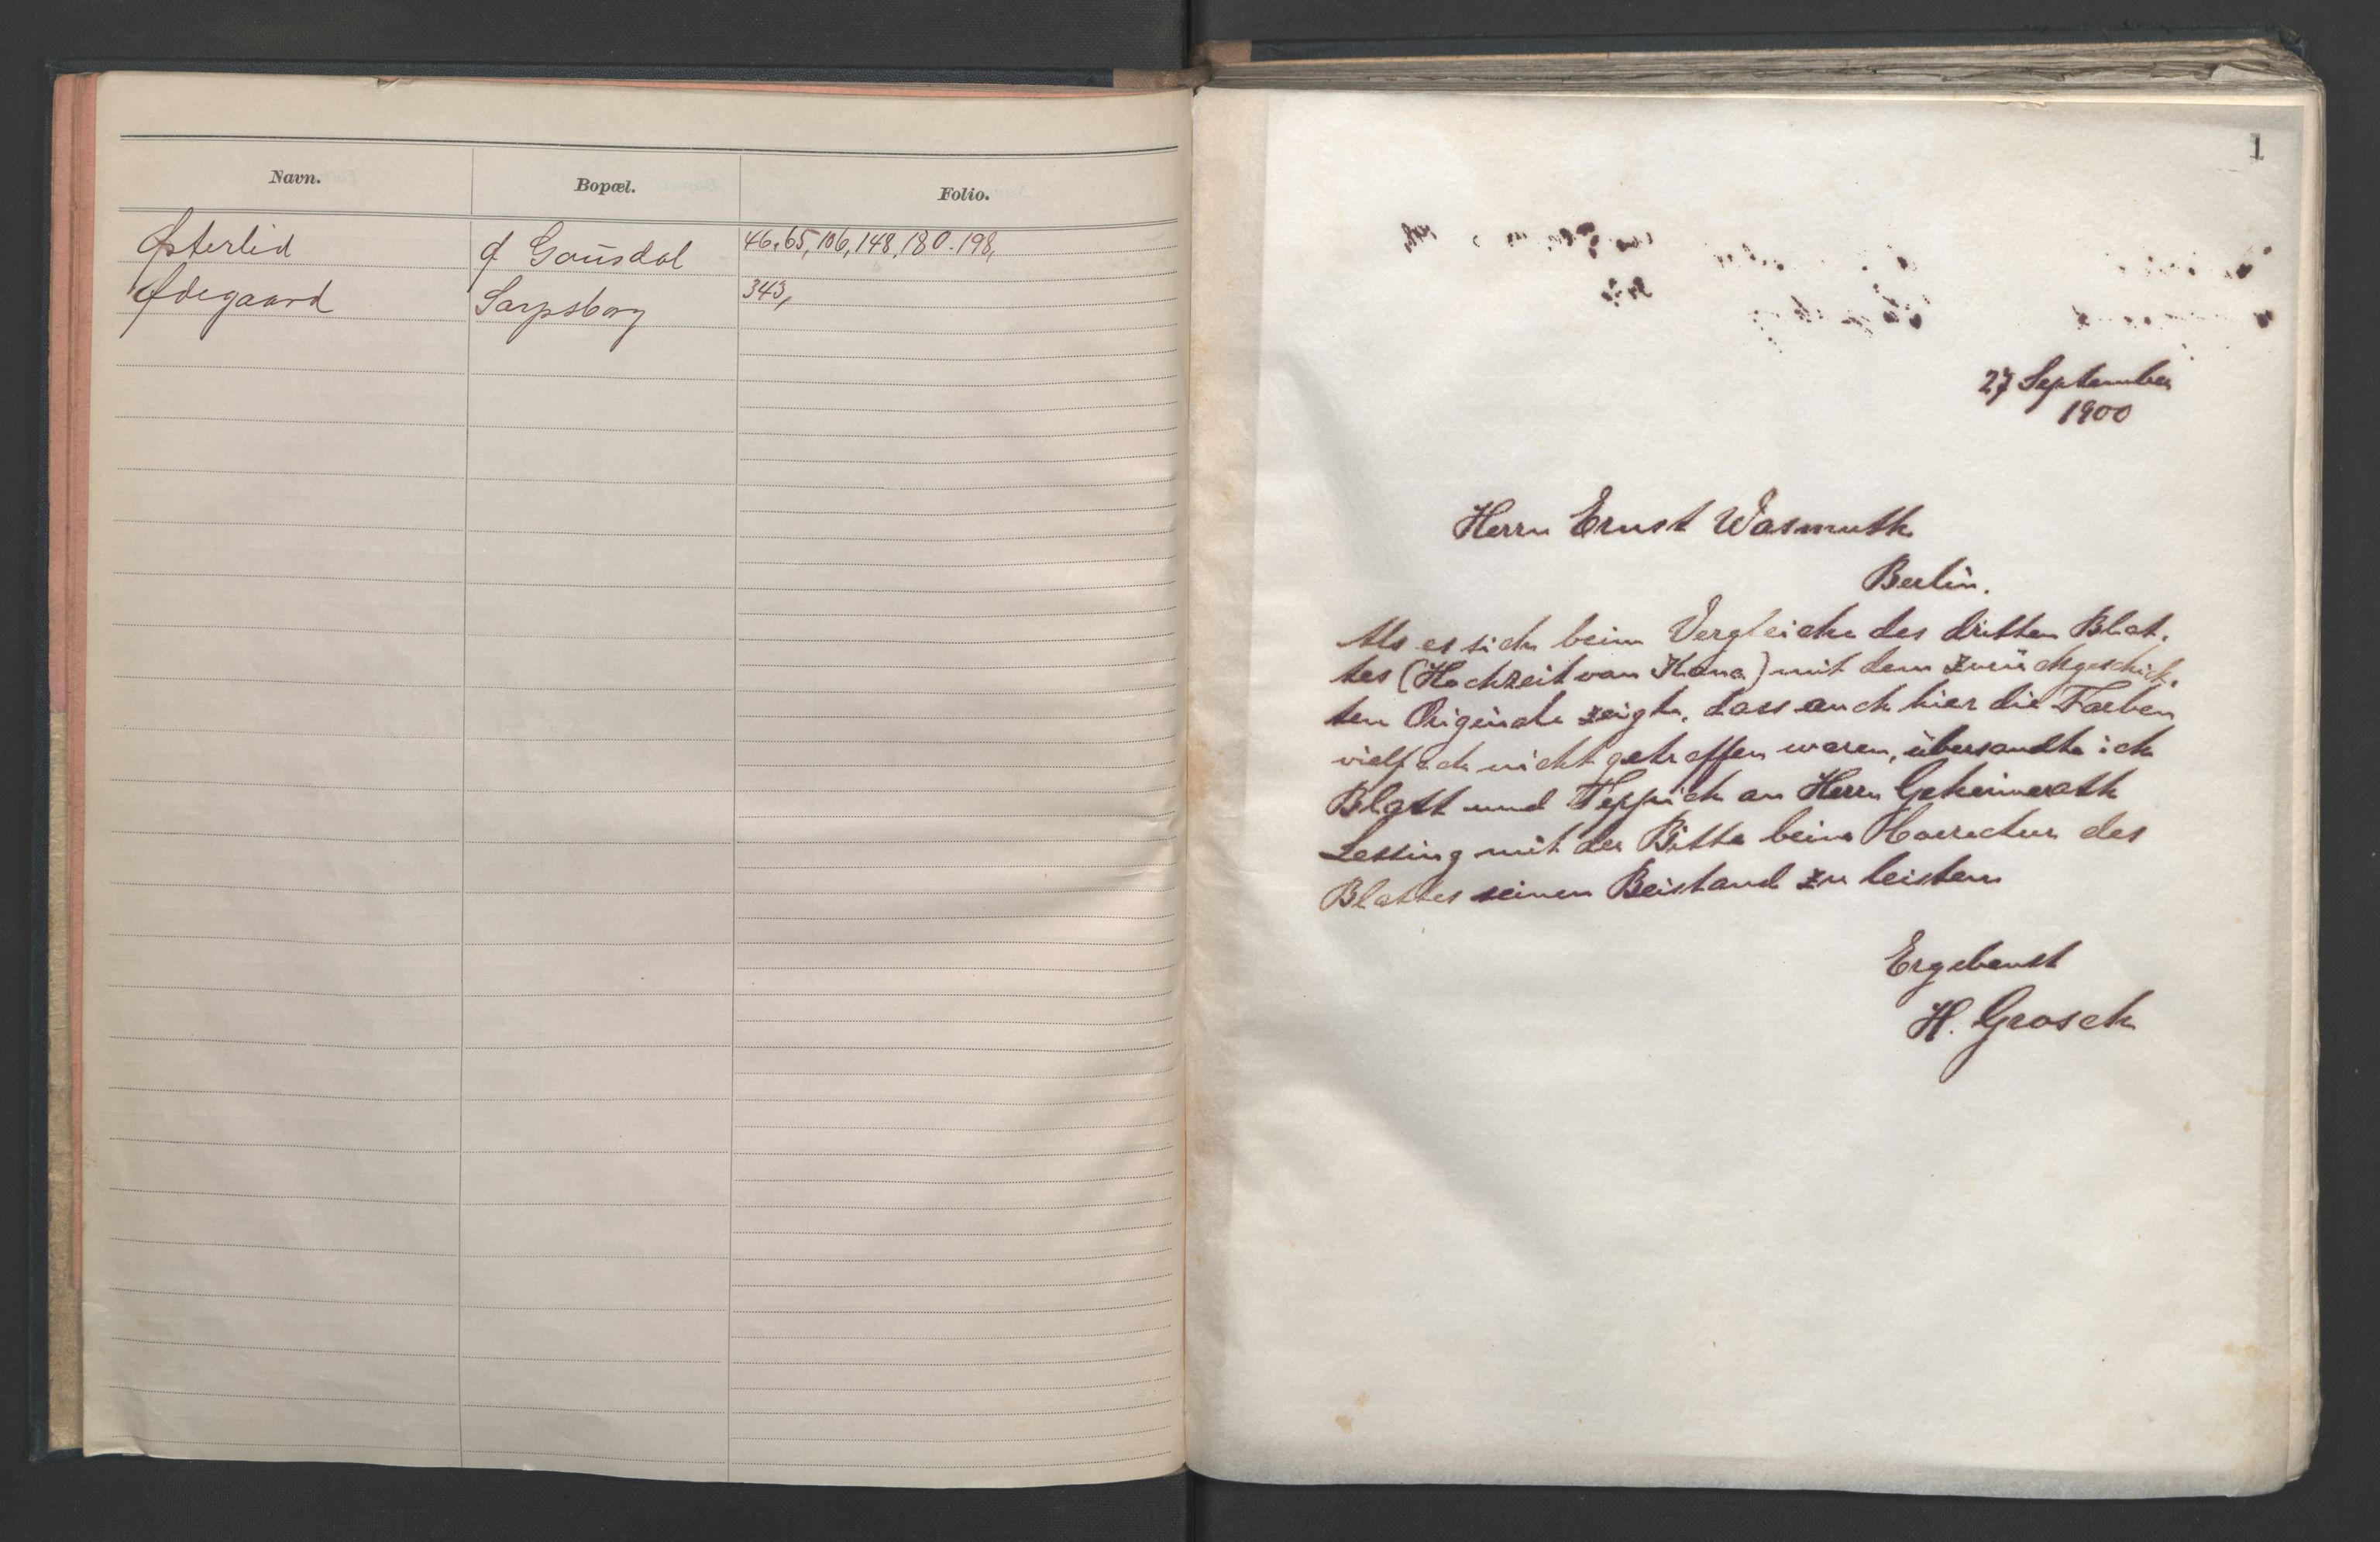 Navn. Bopæl. Folio.
Østerlid Ø Gausdal 46. 65, 106, 148, 180. 198,
Ødegaard Sarpsborg 343,
1
27 September
1900
Herrn Ernst Wasmuth
Berlin.
Als es sich beim Vergleiche des dritten Blat-
tes (Hochzeit von Kana) mit dem zurückgeschick-
ten Originale zeigte, dass auch hier die Farben
vielfach nicht getroffen waren, übersandte ich
Blatt und Teppich an Herrn Geheimerath
Lessing mit der Bitte beim Correctur des
Blattes seinen Beistand zu leisten
Ergebenst
H. Grosch